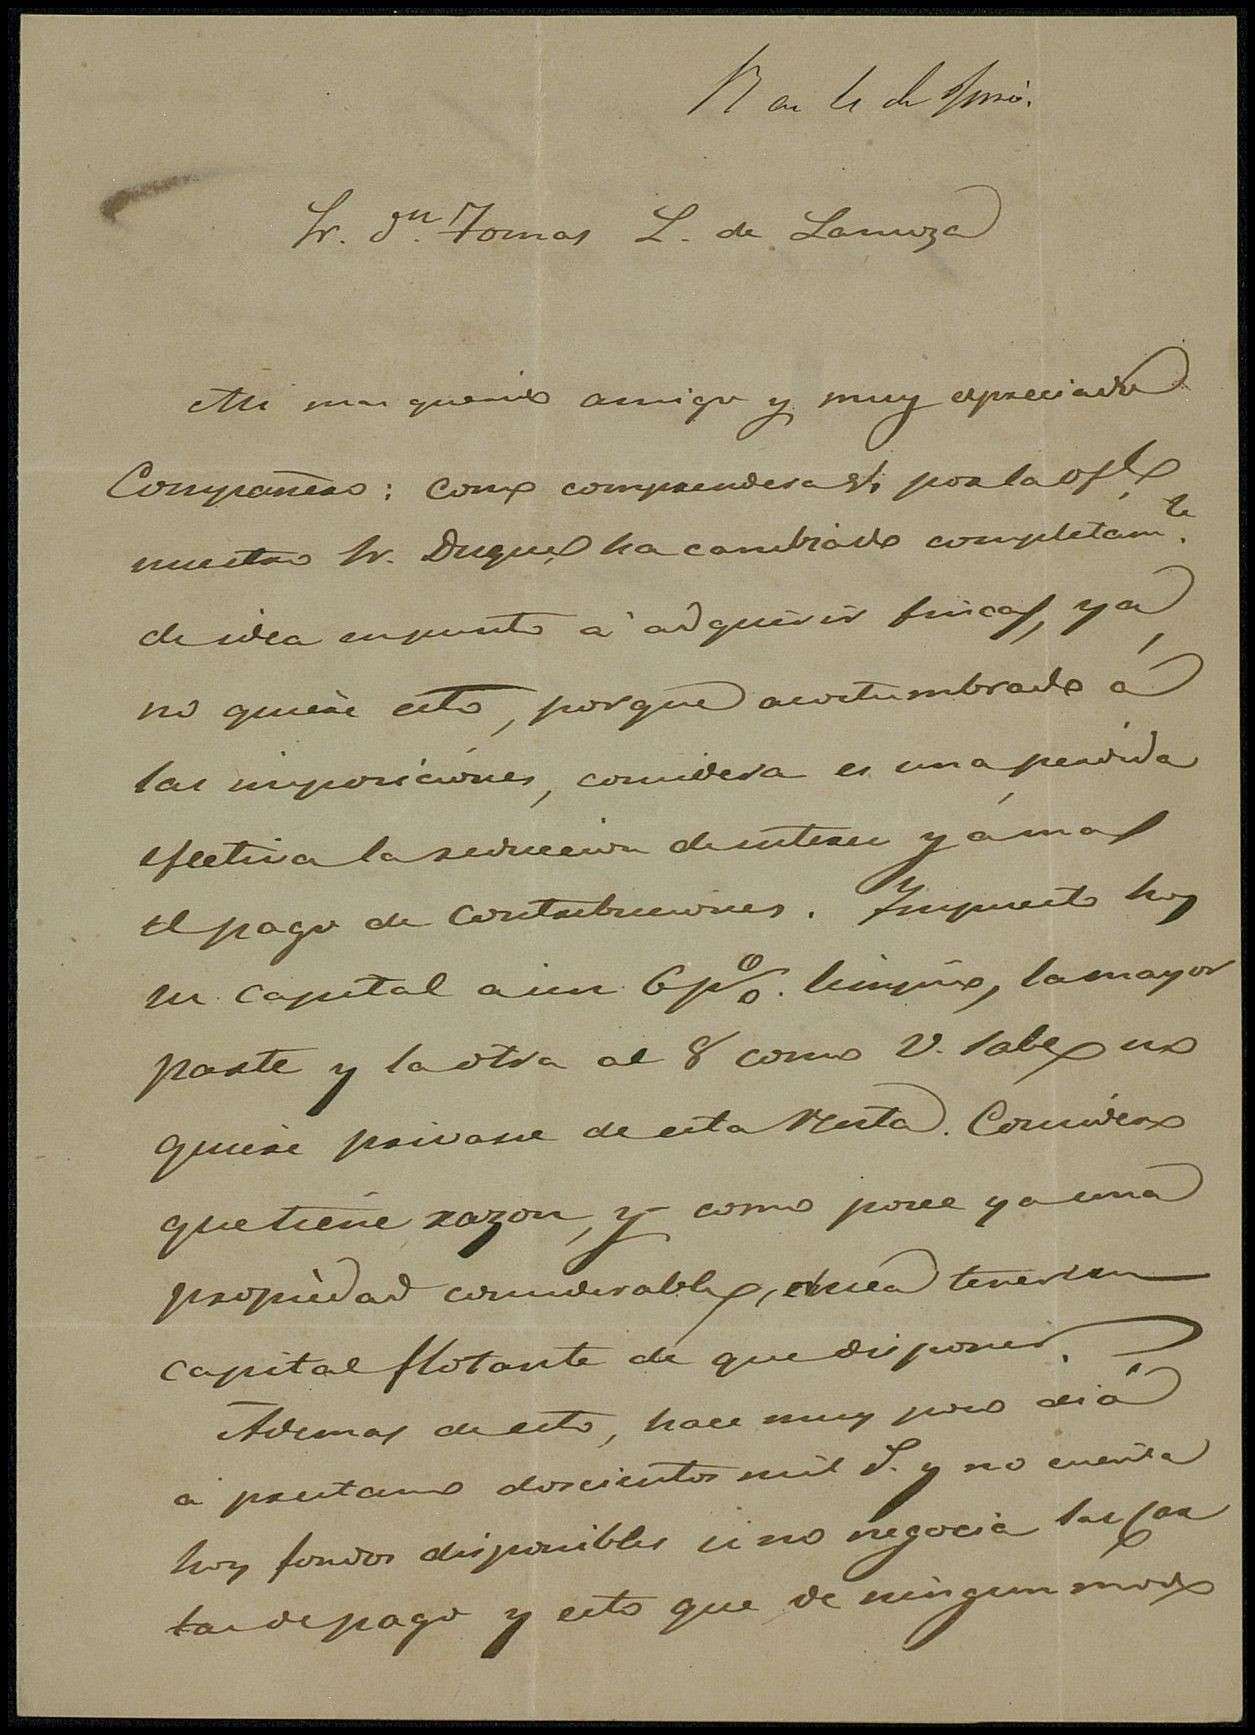 de
Sr. Dn. Tomas L. de Lanuza
Mi mas querido amigo y muy apreciado
Compañero: como comprendera V. por la
nuestro Sr. Duque, ha cambiado completamte.
de idea en punto á adquirir fincas, ya
no quiere esto, porque acostumbrado á
las imposiciónes, considera es una perdida
efectiva la reduccion de interes y á mas
el pago de contribuciones. Impuesto hoy
su capital a un 6 p% limpio, la mayor
parte y la otra al 8 como V. sabe no
quiere privarse de esta Renta. Considero
que tiene razon, y como posee ya una
propiedad considerable, desea tener un
capital flotante de que disponer.
Ademas de esto, hace muy poco
á prestamo doscientos mil y no cuenta
hoy fondos disponibles si no negocia las car
tas de pago y esto que de ningun modo